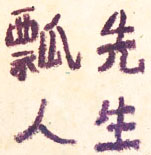 先生
瓢人